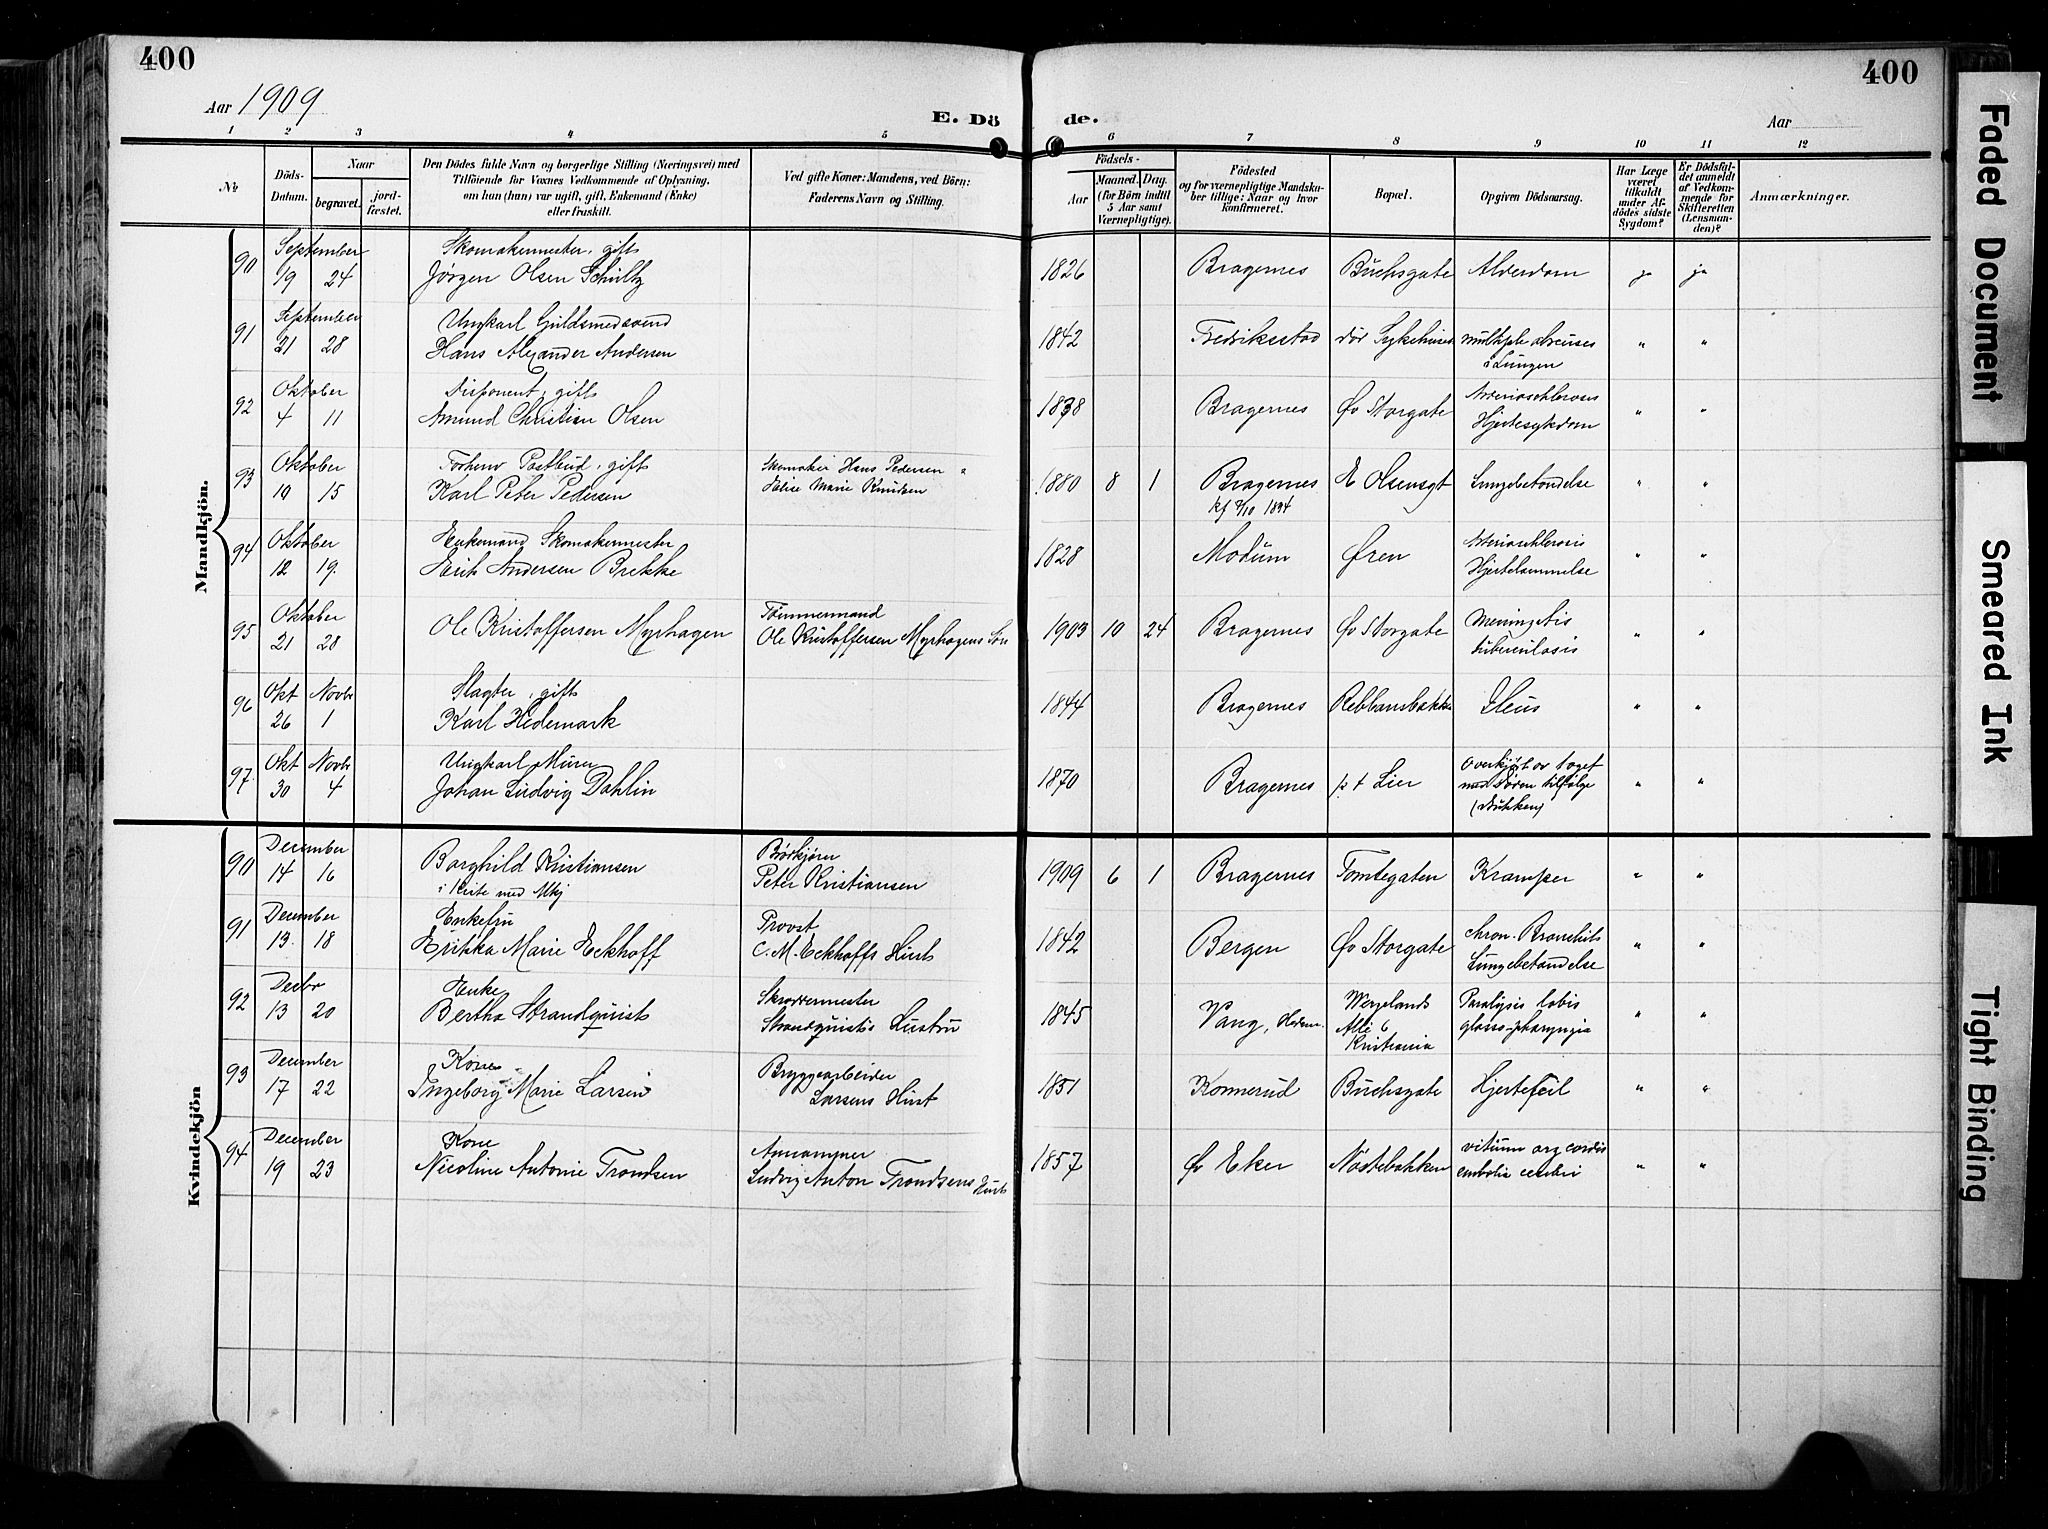 400
400
Aar 1909
E. Dö
de.
Aar
1 2 3 4 5 6 7 8 9 10 11 12
No
Döds-Datum.
Naar
begravet.
jord-fæstet.
Den Dödes fulde Navn og borgerlige Stilling (Næringsvei) med
Tilföiende for Voxnes Vedkommende af Oplysning,
om han (hun) var ugift, gift, Enkemand (Enke)
eller fraskilt.
Ved gifte Koner: Mandens, ved Börn:
Faderens Navn og Stilling.
Födsels-
Aar
Maaned.
Dag.
(for Börn indtil
5 Aar samt
Værnepligtige).
Födested
og for værnepligtige Mandsku-
ber tillige: Naar og hvor
konfirmeret.
Bopæl.
Opgiven Dödsaarsag.
Har Læge
været
tilkaldt
under Af-
dödes sidste
Sygdom?
Er Dödsfal-
det anmeldt
af Vedkom-
mende for
Skifteretten
(Lensman-
den)?
Anmærkninger.
Mandkjön.
90 September Skomakermester, gift
19 24 Jørgen Olsen Schultz 1826 Bragernes Buchsgate Alderdom ja ja
91 September Ungkarl Guldsmedsvend
21 28 Hans Alexander Andersen 1842 Fredriksstad Sykehuset multiple abscesser " "
i Lungen
92 Oktober Disponent, gift
4 11 Amund Christian Olsen 1838 Bragernes Øv Storgate Arteriosclerosis " "
Hjertesykdom
93 Oktober Forhenv Postbud, gift Skomaker Hans Pedersen
10 15 Karl Peter Pedersen Marie Knudsen 1880 8 1 Bragernes E Olsensgt Lungebetændelse " "
kf 7/10 1894
94 Oktober Enkemand Skomakermester
12 19 Erik Andersen Brekke 1828 Modum Øren Arteriosclerosis " "
Hjertelammelse
95 Oktober Tømmermand
21 28 Ole Kristoffersen Myrhagen Ole Kristoffersen Myrhagens Søn 1903 10 24 Bragernes Øv Storgate Meningitis " "
tuberculosis
96 Okt Novbr Slagter, gift
26 1 Karl Hedemark 1844 Bragernes Rebbansbakken Ileus " "
97 Okt Novbr Ungkarl Murer
30 4 Johan Ludvig Dahlin 1870 Bragernes p t Lier Overkjørt av toget " "
tilfølge
(Drukken)
Kvindekjön
90 December Brødkjører
14 16 Borghild Kristiansen Peter Kristiansen 1909 6 1 Bragernes Tomtegaten Kramper " "
i Kiste med
91 December Enkefru Provst
13 18 Erikka Marie Eckhoff C. M. Eckhoffs Hust 1842 Bergen Øv Storgate chron. Bronchitis " "
Lungebetændelse
92 Decbr Enke Skræddermester
13 20 Bertha Strandquist Strandquists Hustru 1845 Vang, Hedem. Wergelands Alle 6 Kristiania Paralysis labio " "
glosso-pharyngia
93 December Kone Bryggearbeider
17 22 Ingeborg Marie Larsen Larsens Hust 1851 Konnerud Buchsgate Hjertefeil " "
94 December Kone Annammer
19 23 Nicoline Antonie Trondsen Ludvig Anton Trondsens Hust 1857 Øv Eker Nöstebakken vitium org cordis " "
embolia cerebri
Faded Document
Smeared Ink
Tight Binding